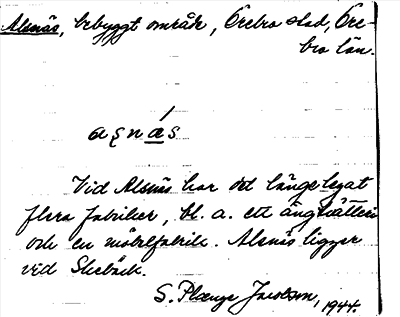 Alsnäs, bebyggt område, Örebro stad, Öre-
bro län.
a ʂ n ǽ s
Vid Alsnäs har det länge legat
flera fabriker, bl. a. ett ångtvätteri
och en möbelfabrik. Alsnäs ligger
vid Skebäck.
S. Plænge Jacobson, 1944.